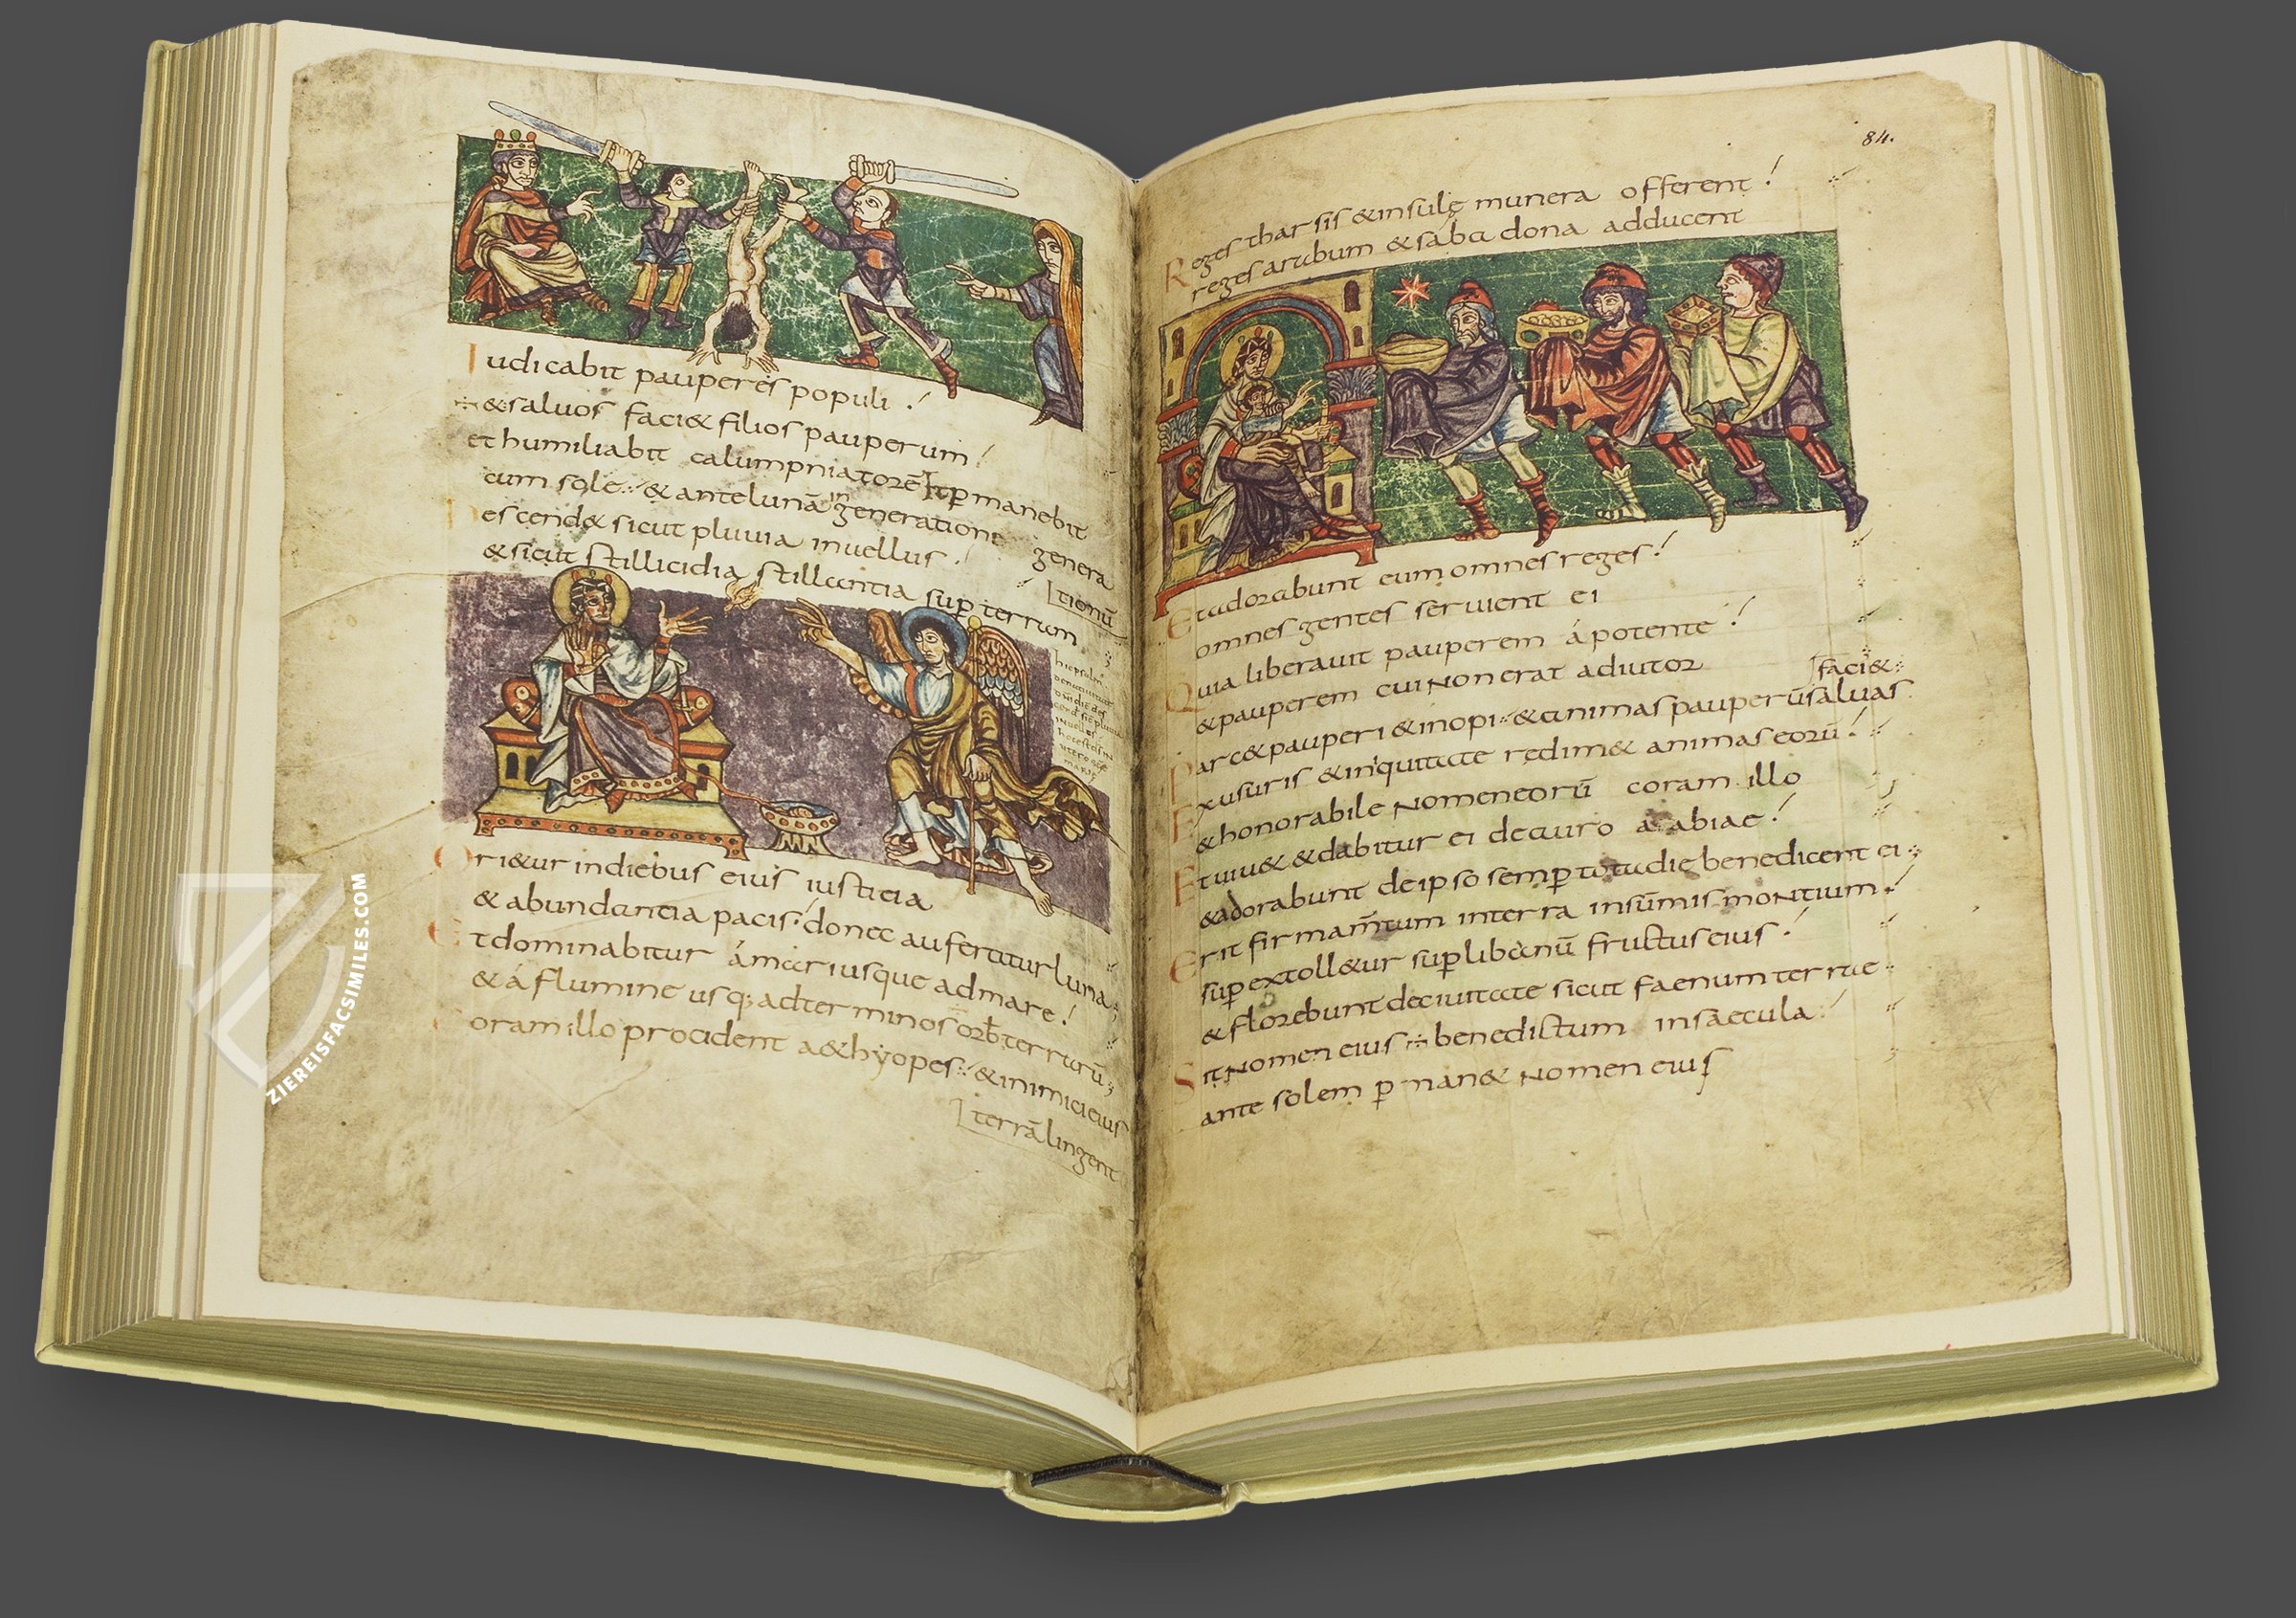 Iudicabit pauperes populi
& saluos faci& filios pauperum
et humiliabit calumpniatorē & p̄manebit
cum sole & ante lunā in generatione genera
tionū
Descend& sicut pluuia in uellus
& sicut stillicidia stillantia sup terram
Ori&ur in diebus eius iusticia
& abundantia pacis donec auferatur luna
Et dominabitur á mari usque ad mare
& á flumine usq; ad terminos orb terrarū
Coram illo procident a&hyopes & inimici eius
terrā lingent
84.
Reges tharsis & insulę munera offerent
reges arabum & saba dona adducent
Et adorabunt eum omnes reges
omnes gentes seruient ei
Quia liberauit pauperem á potente
& pauperem cui non erat adiutor
faci&
Parc& pauperi & inopi & animas pauperū saluas
Ex usuris & iniquitate redim& animas eorū
& honorabile nomen eorū coram illo
Et uiu& & dabitur ei de auro arabiae
& adorabunt de ipso semp tota die benedicent ei
Erit firmam̄tum in terra in sūmis montium
sup extoll&ur sup libanū fructus eius
& florebunt de ciuitate sicut faenum terrae
Sit nomen eius benedictum in saecula
ante solem p manet nomen eius
ZIEREISFACSIMILES.COM